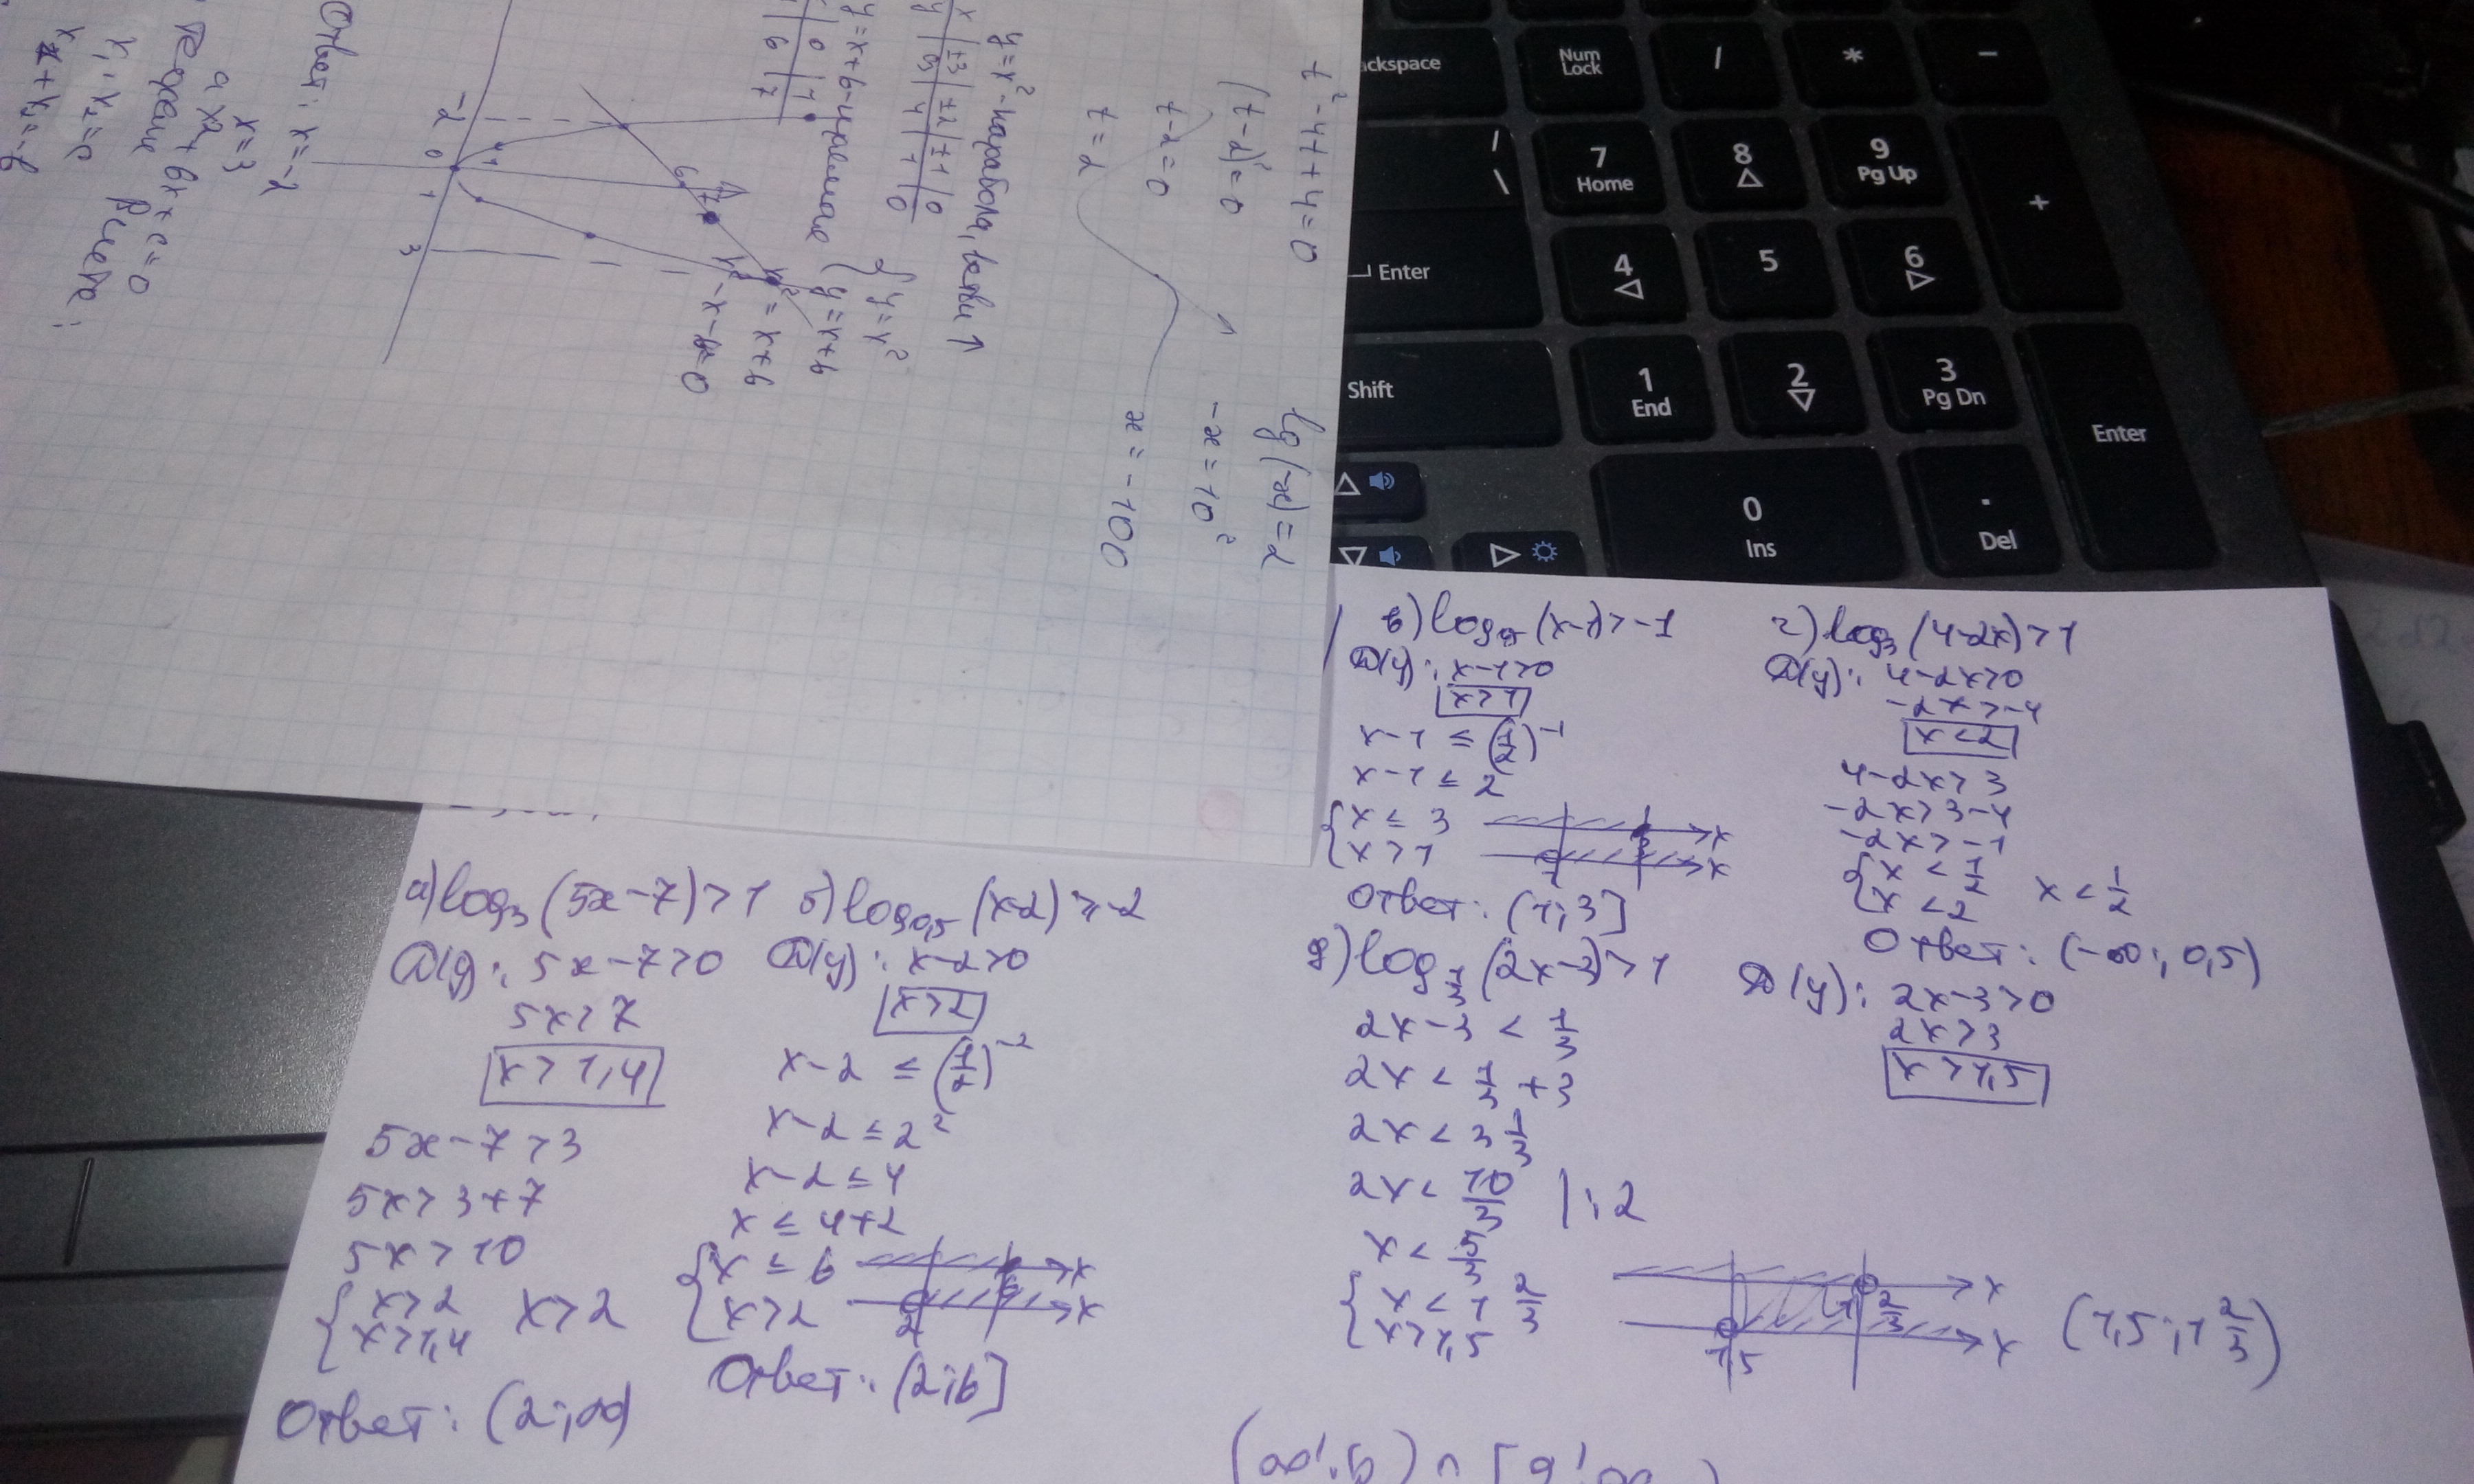 t² - 4t + 4 = 0
(t-2)² = 0
t-2 = 0
t = 2
lg(-x) = 2
-x = 10²
x = -100
y = x² - парабола, ветви ↑
x | ±3 | ±2 | ±1 | 0
y | 9 | 4 | 1 | 0
y = x+6 - прямая
0 | 1
6 | 7
{ y = x²
y = x+6
x² = x+6
x² - x - 6 = 0
-2 0 1 3
6
7
Ответ: x = -2
x = 3
ax² + bx + c = 0
x₁ · x₂ = c
x₁ + x₂ = -b
ckspace
Num Lock
/
*
-
7 Home
8
9 Pg Up
+
Enter
4
5
6
Shift
1 End
2
3 Pg Dn
Enter
0 Ins
. Del
а) log₃(5x-7) > 1
D(y): 5x-7>0
5x>7
x > 1,4
5x-7>3
5x>3+7
5x>10
{ x>2
x>1,4
x>2
Ответ: (2;∞)
б) log₀,₅(x-2) ≥ -2
D(y): x-2>0
x>2
x-2 ≤ (1/2)⁻²
x-2 ≤ 2²
x-2 ≤ 4
x ≤ 4+2
{ x ≤ 6
x>2
2 6 x
x
Ответ: (2;6]
x-1>0
x>1
x-1 ≤ (1/2)⁻¹
x-1 ≤ 2
{ x ≤ 3
x>1
1 3 x
x
Ответ: (1;3]
г) log₃(4-2x)>1
D(y): 4-2x>0
-2x>-4
x<2
4-2x>3
-2x>3-4
-2x>-1
{ x < 1/2
x < 2
x < 1/2
Ответ: (-∞; 0,5)
д) log₁/₃(2x-3)>1
D(y): 2x-3>0
2x>3
x>1,5
2x-3 < 1/3
2x < 1/3 + 3
2x < 3 1/3
2x < 10/3 |:2
x < 5/3
{ x < 1 2/3
x>1,5
1,5 1 2/3 x
x
(1,5; 1 2/3)